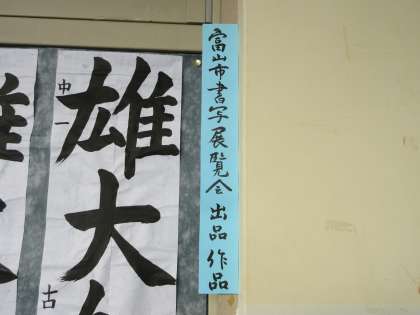 富山市書写展覧会出品作品
雄大
中一
古